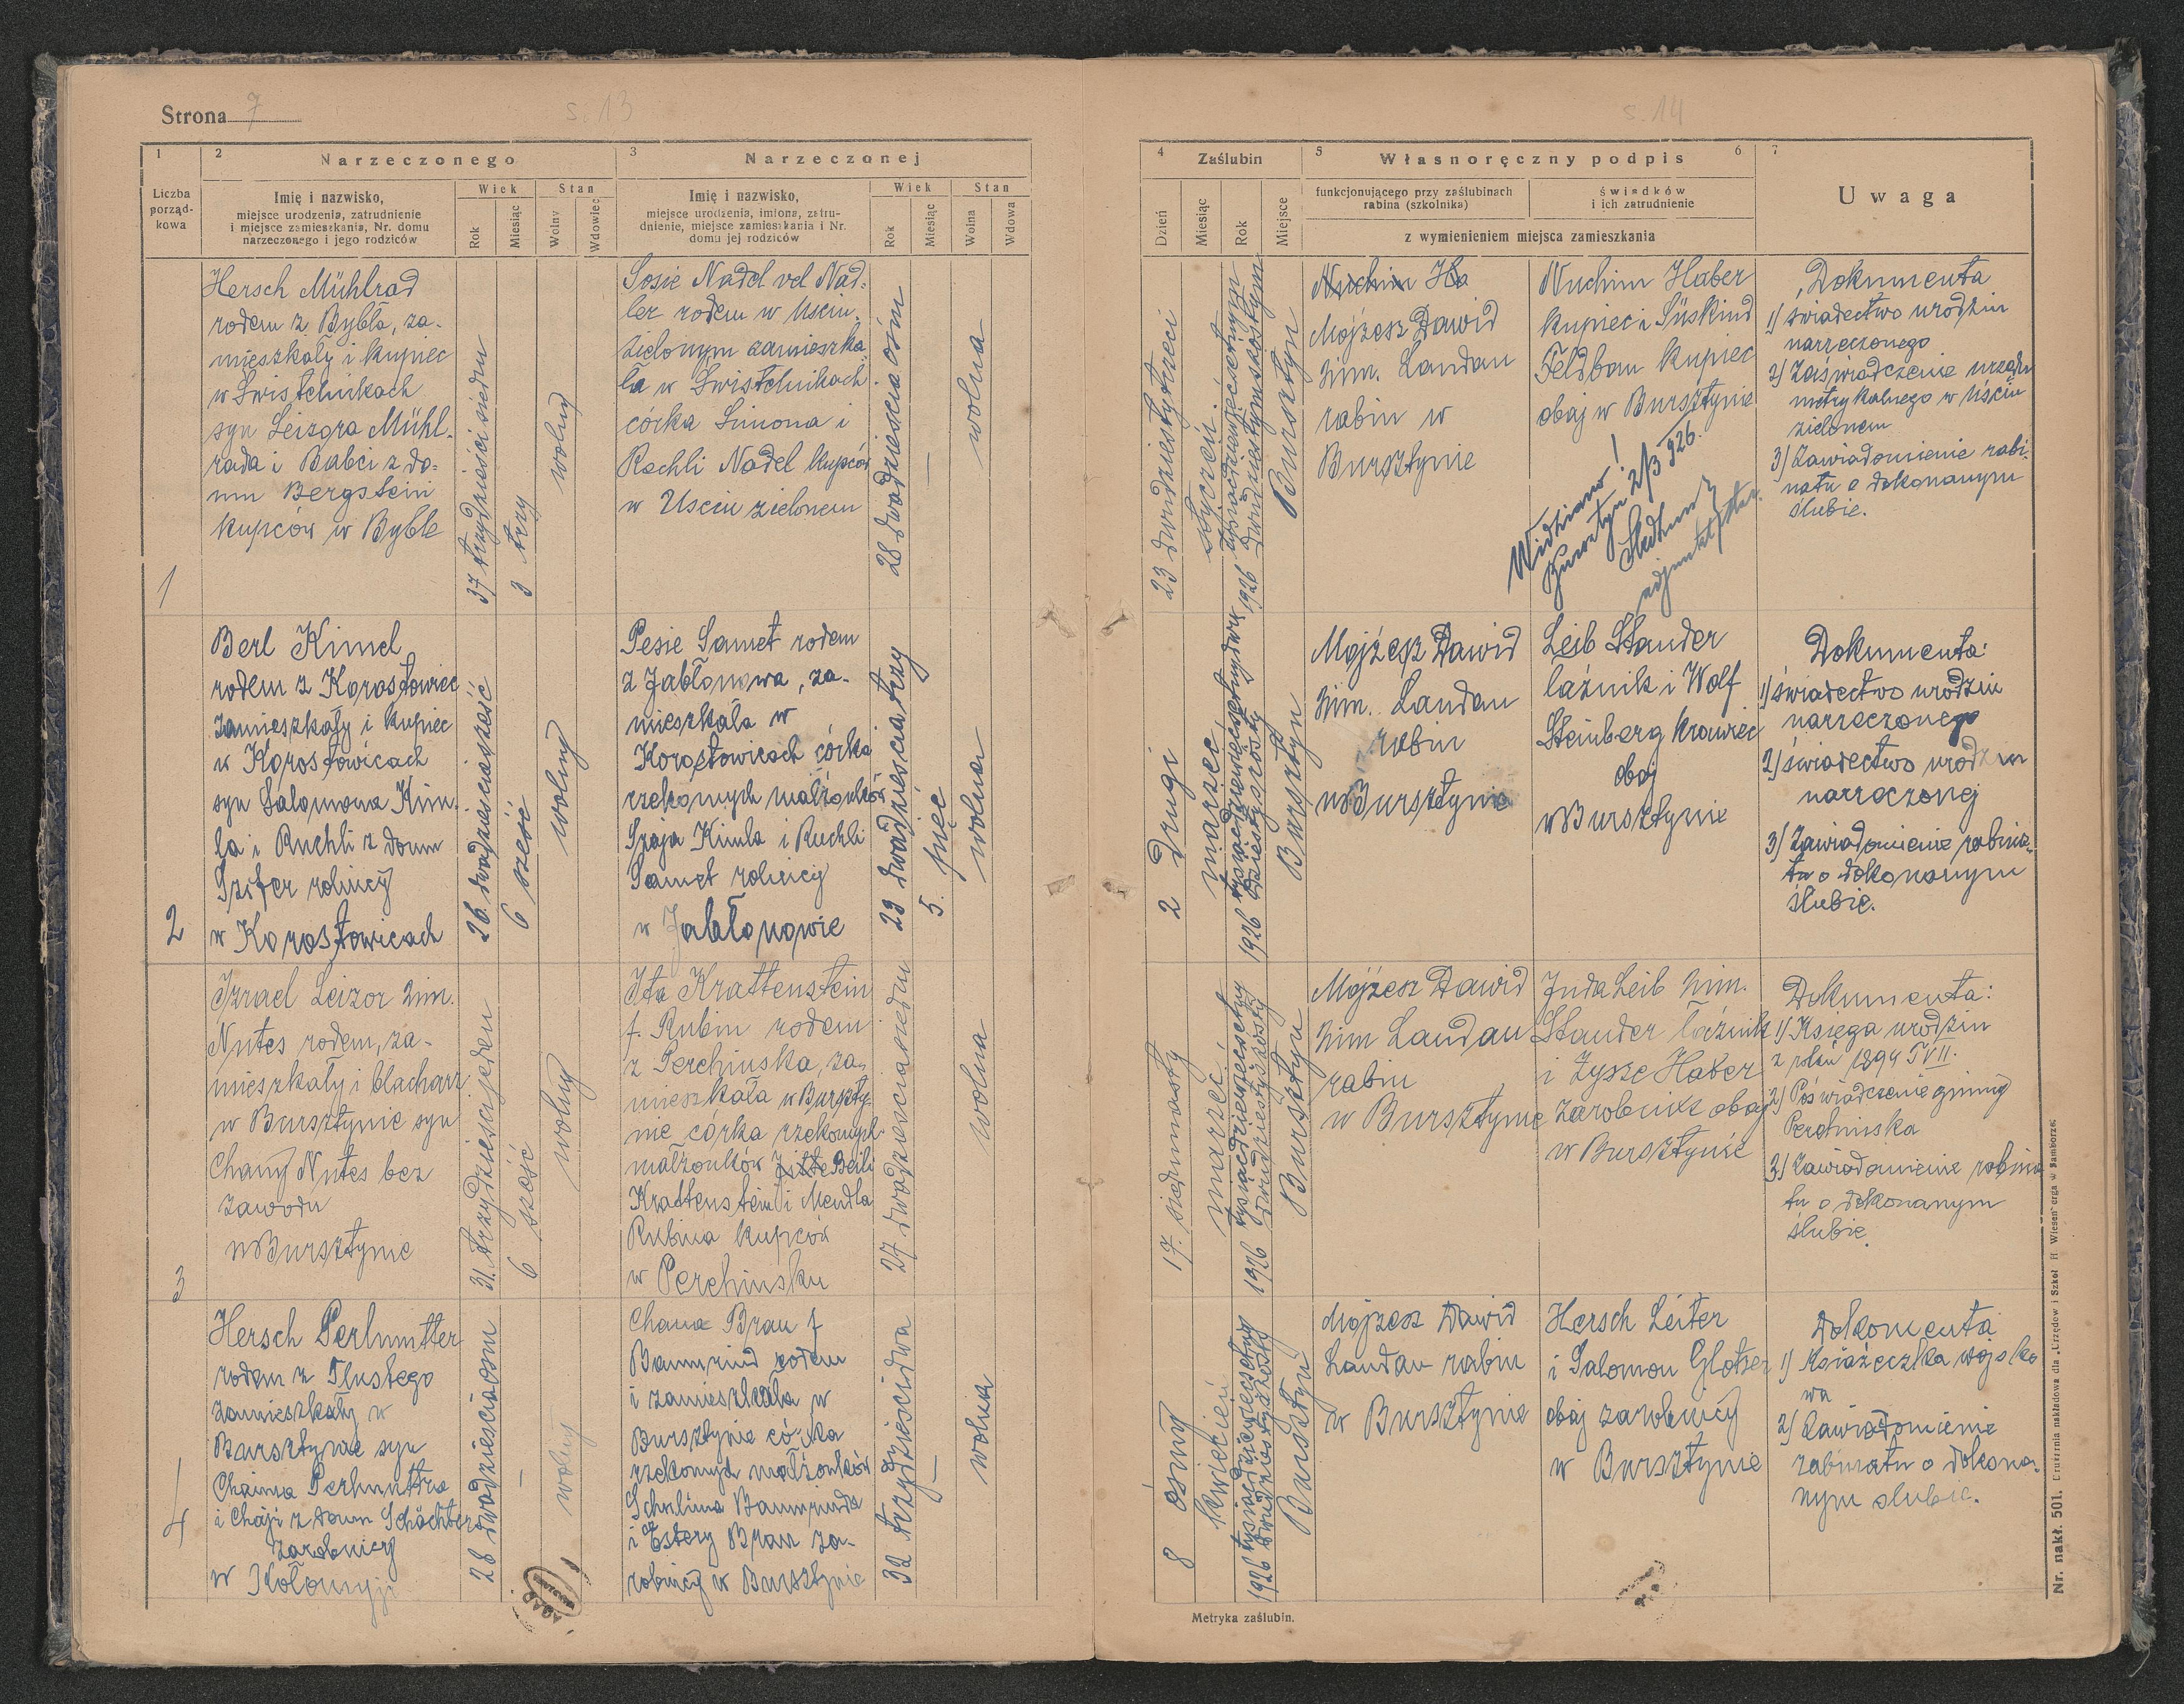 Strona 7
s. 13
1
Liczba
porząd-
kowa
2
Narzeczonego
Imię i nazwisko,
miejsce urodzenia, zatrudnienie
i miejsce zamieszkania, Nr. domu
narzeczonego i jego rodziców
Wiek
Rok
Miesiąc
Stan
Wolny
Wdowiec
3
Narzeczonej
Imię i nazwisko,
miejsce urodzenia, imiona, zatru-
dnienie, miejsce zamieszkania i Nr.
domu jej rodziców
Wiek
Rok
Miesiąc
Stan
Wolna
Wdowa
1
Hersch Mühlrad
rodem z Bybła, za-
mieszkały i kupiec
w Swistelnikach
syn Leizora Mühl-
rada i Babci z do-
mu Bergstein
kupców w Byble
37 trzydzieści siedm
3 trzy
wolny
Sosie Nadel vel Nad-
ler rodem w Usciu
zielonym zamieszka-
ła w Swistelnikach
córka Simona i
Rachli Nadel kupców
w Usciu zielonem
28 dwadzieścia ośm
—
wolna
2
Berl Kimel
rodem z Korostowiec
zamieszkały i kupiec
w Korostowicach
syn Salamona Kim-
la i Ruchli z domu
Szifer rolnicy
w Korostowicach
26 dwadzieścia sześć
6 sześć
wolny
Pesie Samet rodem
z Jabłonowa, za-
mieszkała w
Korostowicach córka
rzekomych małżonków
Szaja Kimla i Ruchli
Samet rolnicy
w Jabłonowie
23 dwadzieścia trzy
5. pięć
wolna
3
Izrael Leizor 2im.
Nutes rodem, za-
mieszkały i blacharz
w Bursztynie syn
Chany Nutes bez
zawodu
w Bursztynie
31. trzydzieści jeden
6 sześć
wolny
Ita Krattenstein
f. Rubin rodem
z Perehinska, za-
mieszkała w Burszty-
nie córka rzekomych
małżonków Jitte Beili
Krattenstein i Mendla
Rubina kupców
w Perehinsku
27 dwadzieścia siedm
wolna
4
Hersch Perlmutter
rodem z Tłustego
zamieszkały w
Bursztynie syn
Chaima Perlmuttra
i Chaji z domu Schächter
zarobnicy
w Kołomyji
28 dwadzieścia ośm
—
wolny
Chana Brau f
Baumrind rodem
i zamieszkała w
Bursztynie córka
rzekomych małżonków
Schulima Baumrinda
i Estery Brau za-
robnicy w Bursztynie
32 trzydzieści dwa
—
wolna
s. 14
4
Zaślubin
Dzień
Miesiąc
Rok
Miejsce
5
Własnoręczny podpis
6
funkcjonującego przy zaślubinach
rabina (szkolnika)
świadków
i ich zatrudnienie
z wymienieniem miejsca zamieszkania
7
Uwaga
23 dwudziestytrzeci
styczeń.
1926 tysiącdziewięćsetnym
dwudziestymszóstym
Bursztyn
Nuchim Ha
Mojżesz Dawid
2im. Landau
rabin w
Bursztynie
Nuchim Haber
kupiec i Süskind
Feldbau kupiec
obaj w Bursztynie
Widziano!
Bursztyn 2/3 926.
Dokumenta
1) świadectwo urodzin
narzeczonego
2) Zaświadczenie urzędu
metrykalnego w Uściu
zielonem
3) Zawiadomienie rabi-
natu o dokonanym
ślubie.
2 drugi
marzec
1926 tysiącdziewięćsetnydwu
dziestyszósty
Bursztyn
Mojżesz Dawid
2im. Landau
rabin
w Bursztynie
Leib Stander
łaźnik i Wolf
Steinberg krawiec
obaj
w Bursztynie
Dokumenta:
1) świadectwo urodzin
narzeczonego
2) świadectwo urodzin
narzeczonej
3) Zawiadomienie rabina-
tu o dokonanym
ślubie.
17. siedemnasty
marzec.
1926 tysiącdziewięćsetny
dwudziestyszósty
Bursztyn
Mojżesz Dawid
2im Landau
rabin
w Bursztynie
Juda Leib 2im.
Stander łaźnik
i Zysze Haber
zarobnik obaj
w Bursztynie
Dokumenta:
1) Księga urodzin
z roku 1894 T VII.
2) Poświadczenie gminy
Perehinska
3) Zawiadomienie rabina
tu o dokonanym
ślubie.
8 ósmy
kwiecień
1926 tysiącdziewięćsetny
dwudziestyszósty
Bursztyn
Mojżesz Dawid
Landau rabin
w Bursztynie
Hersch Leiter
i Salomon Glotzer
obaj zarobnicy
w Bursztynie
Dokomenta
1) Książeczka wojsko
wa
2) Zawiadomienie
rabinatu o dokona-
nym slubie.
Metryka zaślubin.